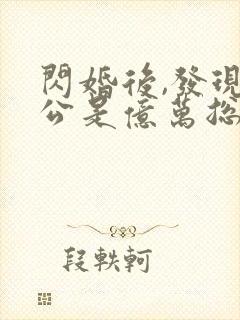 閃婚後,發現
公是億萬総
段軼軻